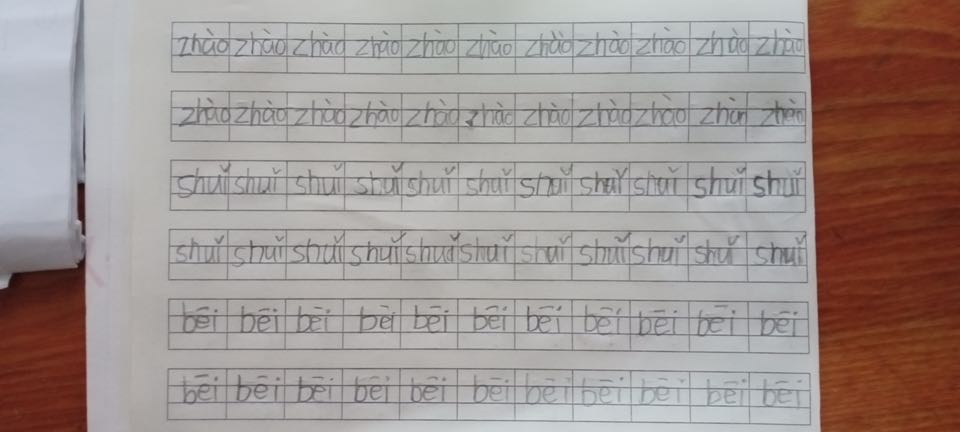 zhào zhào zhào zhào zhào zhào zhào zhào zhào zhào zhào
zhào zhào zhào zhào zhào zhào zhào zhào zhào zhào zhào
shuǐ shuǐ shuǐ shuǐ shuǐ shuǐ shuǐ shuǐ shuǐ shuǐ shuǐ
shuǐ shuǐ shuǐ shuǐ shuǐ shuǐ shuǐ shuǐ shuǐ shuǐ shuǐ
bēi bēi bēi bēi bēi bēi bēi bēi bēi bēi bēi
bēi bēi bēi bēi bēi bēi bēi bēi bēi bēi bēi